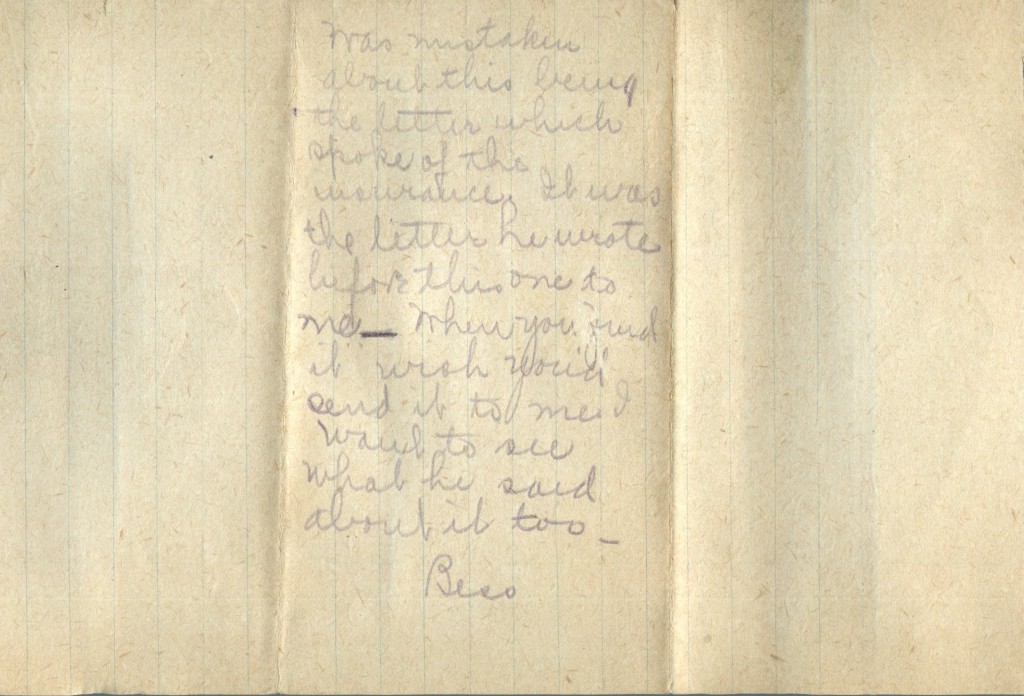 Was mistaken
about this being
the letter which
spoke of the
insurance. It was
the letter he wrote
before this one to
me — When you find
it wish you'd
send it to me I
want to see
what he said
about it too —
Bess